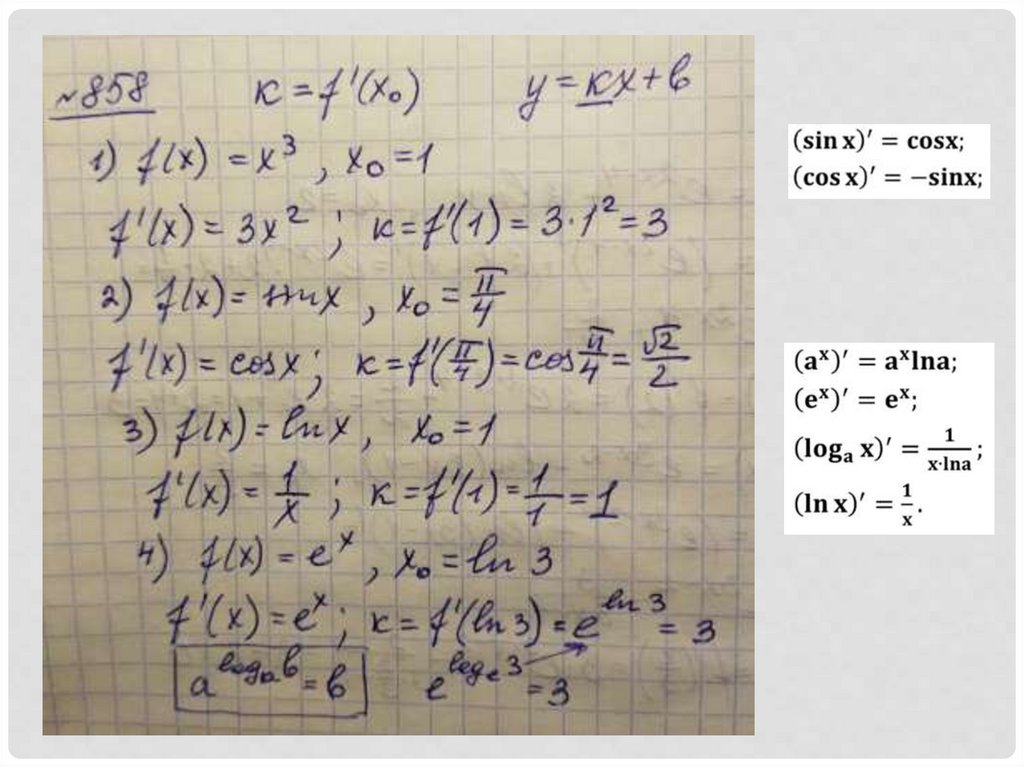 №858 к = f'(x₀) y = кx + b
1) f(x) = x³ , x₀ = 1
f'(x) = 3x² ; к = f'(1) = 3·1² = 3
2) f(x) = sin x , x₀ = π/4
f'(x) = cos x ; к = f'(π/4) = cos π/4 = √2/2
3) f(x) = ln x , x₀ = 1
f'(x) = 1/x ; к = f'(1) = 1/1 = 1
4) f(x) = eˣ , x₀ = ln 3
f'(x) = eˣ ; к = f'(ln 3) = e^(ln 3) = 3
a^(logₐb) = b e^(logₑ3) = 3
(sin x)′ = cosx;
(cos x)′ = −sinx;
(aˣ)′ = aˣlna;
(eˣ)′ = eˣ;
(logₐ x)′ = 1/(x·lna) ;
(ln x)′ = 1/x .